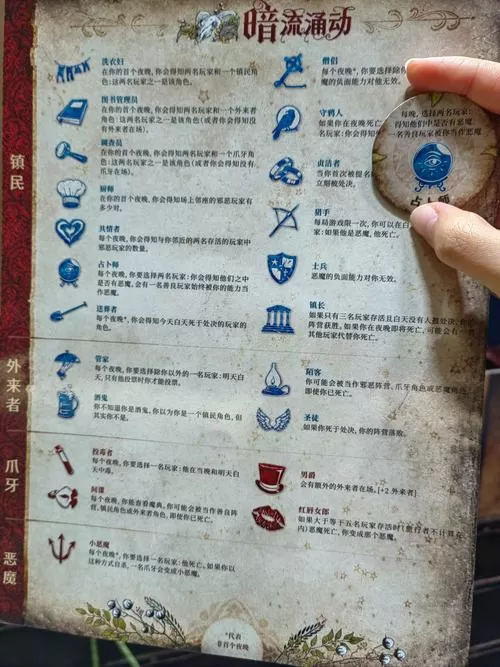 暗流涌动
镇民
洗衣妇
在你的首个夜晚，你会得知两名玩家和一个镇民角
色：这两名玩家之一是该角色。
图书管理员
在你的首个夜晚，你会得知两名玩家和一个外来者
角色：这两名玩家之一是该角色（或者你会得知没
有外来者在场）。
调查员
在你的首个夜晚，你会得知两名玩家和一个爪牙角
色：这两名玩家之一是该角色（或者你会得知没有
爪牙在场）。
厨师
在你的首个夜晚，你会得知场上邻座的邪恶玩家有
多少对。
共情者
每个夜晚，你会得知与你邻近的两名存活的玩家中
邪恶玩家的数量。
占卜师
每个夜晚，你要选择两名玩家：你会得知他们之中
是否有恶魔。会有一名善良玩家始终被你的能力当
作恶魔。
送葬者
每个夜晚*，你会得知今天白天死于处决的玩家的
角色。
僧侣
每个夜晚*，你要选择除你
魔的负面能力对你无效。
守鸦人
如果你在夜晚死亡
名玩家：你会得知
贞洁者
当你首次被提名
立刻被处决。
猎手
每局游戏限一次，你可以在白
家：如果他是恶魔，他死亡。
士兵
恶魔的负面能力对你无效。
镇长
如果只有三名玩家存活且白天没有人被处决，你
阵营获胜。如果你在夜晚即将死亡，可能会有一
其他玩家代替你死亡。
每晚，选择两名玩家：
得知他们中是否有恶魔
一名善良玩家被你当作恶魔
占卜师
外来者
管家
每个夜晚，你要选择除你以外的一名玩家：明天白
天，只有他投票时你才能投票。
酒鬼
你不知道你是酒鬼。你以为你是一个镇民角色，但
其实你不是。
陌客
你可能会被当作邪恶阵营、爪牙角色或恶魔角色，
即使你已死亡。
圣徒
如果你死于处决，你的阵营落败。
爪牙
投毒者
每个夜晚，你要选择一名玩家：他在当晚和明天白
天中毒。
间谍
每个夜晚，你能查看魔典。你可能会被当作善良阵
营、镇民角色或外来者角色，即使你已死亡。
男爵
会有额外的外来者在场。[+2 外来者]
红唇女郎
如果大于等于五名玩家存活时（旅行者不计算在
内）恶魔死亡，你变成那个恶魔。
恶魔
小恶魔
每个夜晚*，你要选择一名玩家：他死亡。如果你以
这种方式自杀，一名爪牙会变成小恶魔。
*代表
非首个夜晚